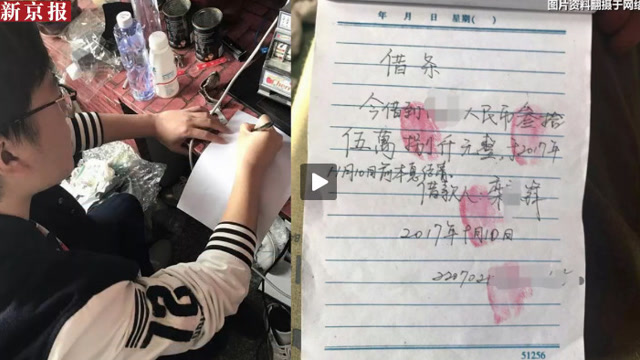 新京报
图片资料翻摄于网络
年 月 日 星期( )
借条
今借到 人民币叁拾
伍萬 仟元整,于2017年
月10日前本息结清。
借款人 栾
2017年 月10日
220702
51256